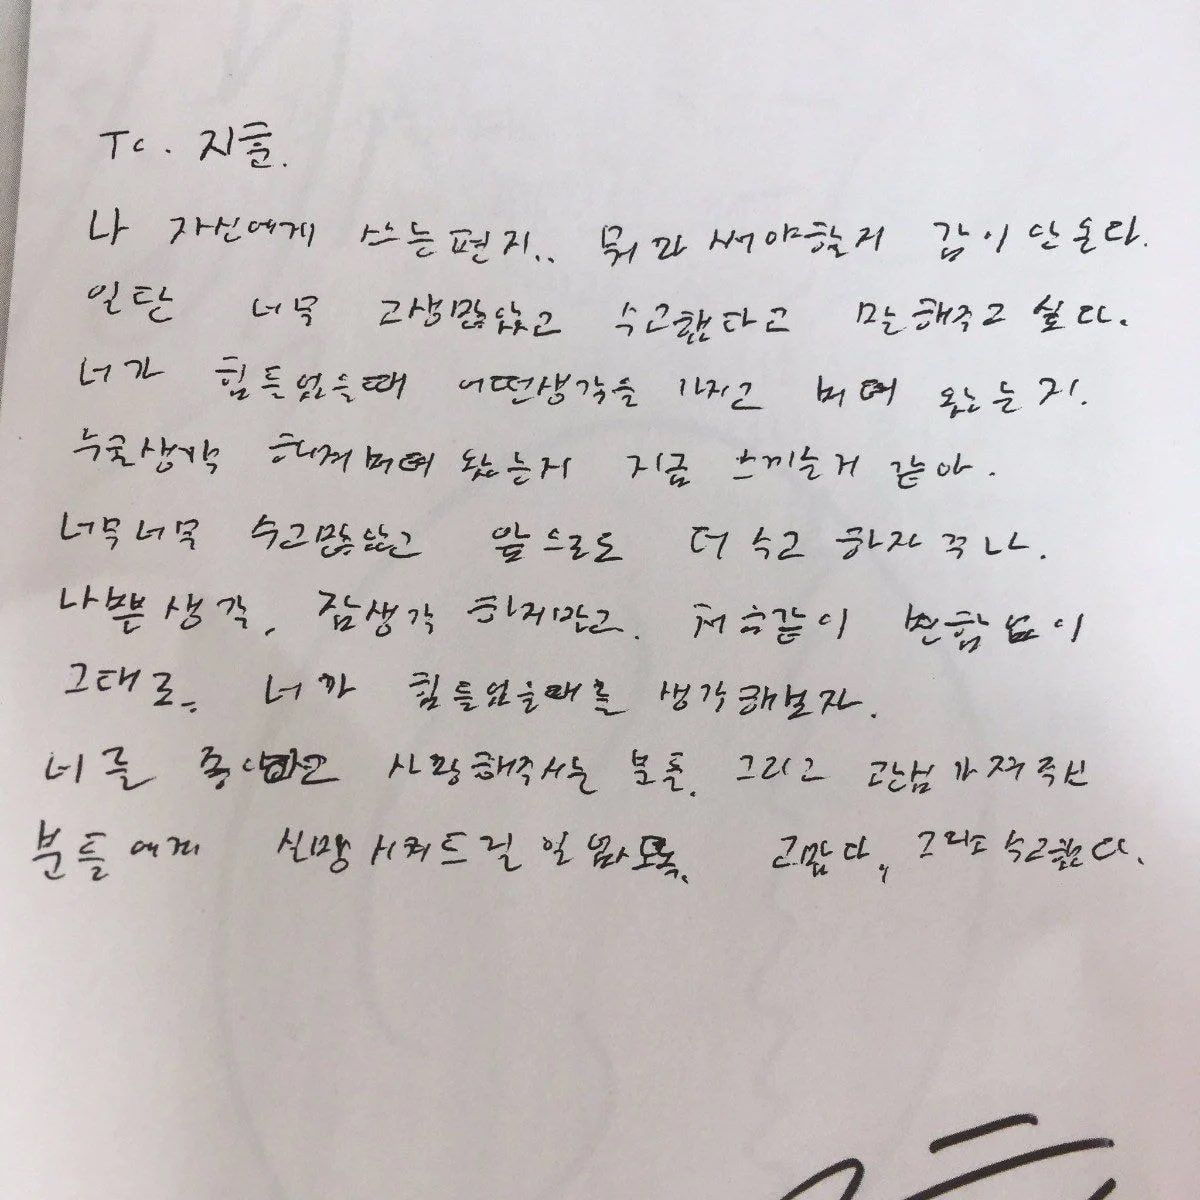 To. 지훈.
나 자신에게 쓰는편지.. 뭐라 써야할지 감이 안온다.
일단 너무 고생많았고 수고했다고 말해주고 싶다.
너가 힘들었을때 어떤생각을 가지고 버텨 왔는지.
누굴생각 하며버텨 왔는지 지금 느끼는거 같아.
너무너무 수고많았고 앞으로도 더 수고 하자 꾹나.
나쁜생각, 잡생각 하지말고. 처음같이 변함없이
그대로.. 너가 힘들었을때를 생각해보자.
너를 좋아하고 사랑해주시는 분들. 그리고 관심가져주신
분들에게 실망시켜드릴 일 없도록. 고맙다, 그리고 수고했다.